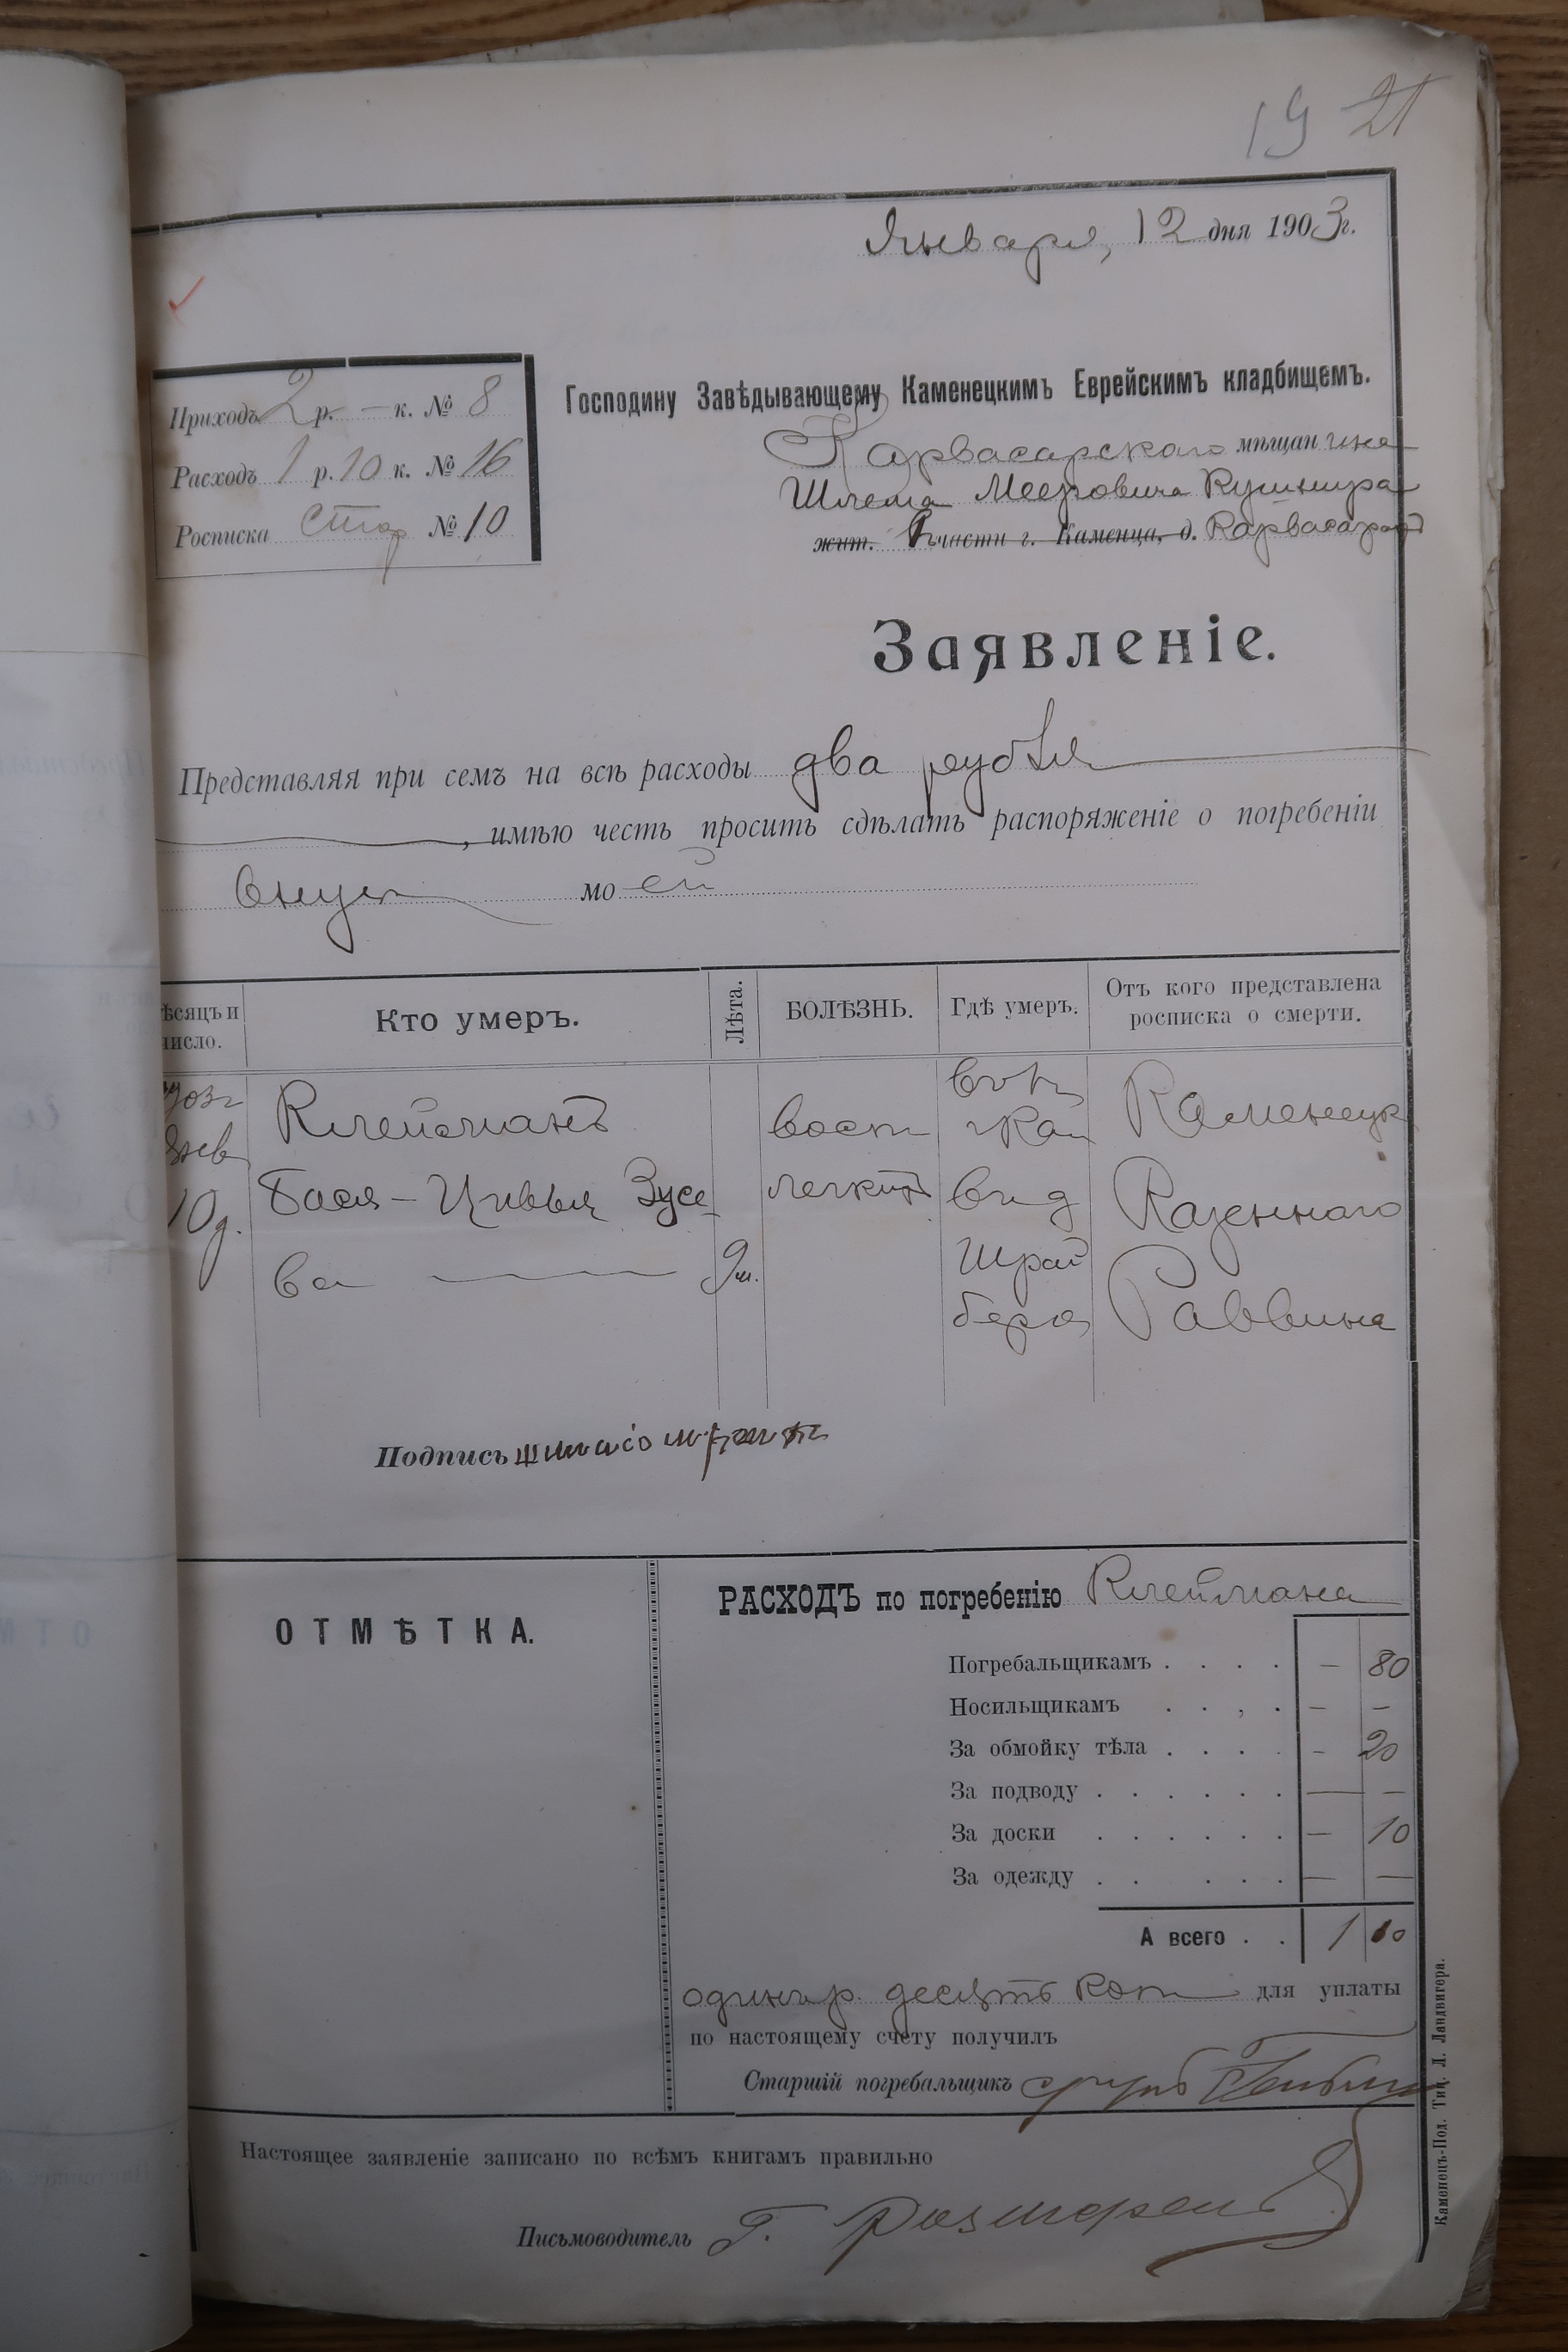 19 21
Января, 12 дня 1903 г.
Приходъ 2 р. — к. № 8
Расходъ 1 р. 10 к. № 16
Росписка стар № 10
Господину Завѣдывающему Каменецкимъ Еврейскимъ кладбищемъ.
Карвасарскаго мѣщанина
Шлема Мееровича Кушнира
жит. части г. Каменца, д. Карвасарахъ
Заявленіе.
Представляя при семъ на всѣ расходы два рубля
, имѣю честь просить сдѣлать распоряженіе о погребеніи
внук моей
ѣсяцъ и число.
Кто умеръ.
Лѣта.
БОЛѢЗНЬ.
Гдѣ умеръ.
Отъ кого представлена росписка о смерти.
903 г
Янв
10 д.
Клейманъ
Бася-Цивья Зусе-
ва
9 м.
восп
легкихъ
в д
Шрай
бера
Каменецк
Казеннаго
Раввина
Подпись
ОТМѢТКА.
РАСХОДЪ по погребенію Клеймана
Погребальщикамъ . . . . — 80
Носильщикамъ . . , . — —
За обмойку тѣла . . . . — 20
За подводу . . . . . . — —
За доски . . . . . . — 10
За одежду . . . . . . — —
А всего . . 1 10
одинъ р. десять коп для уплаты
по настоящему счету получилъ
Старшій погребальщикъ
Настоящее заявленіе записано по всѣмъ книгамъ правильно
Письмоводитель Г.
Каменецъ-Под. Тип. Л. Ландвигера.